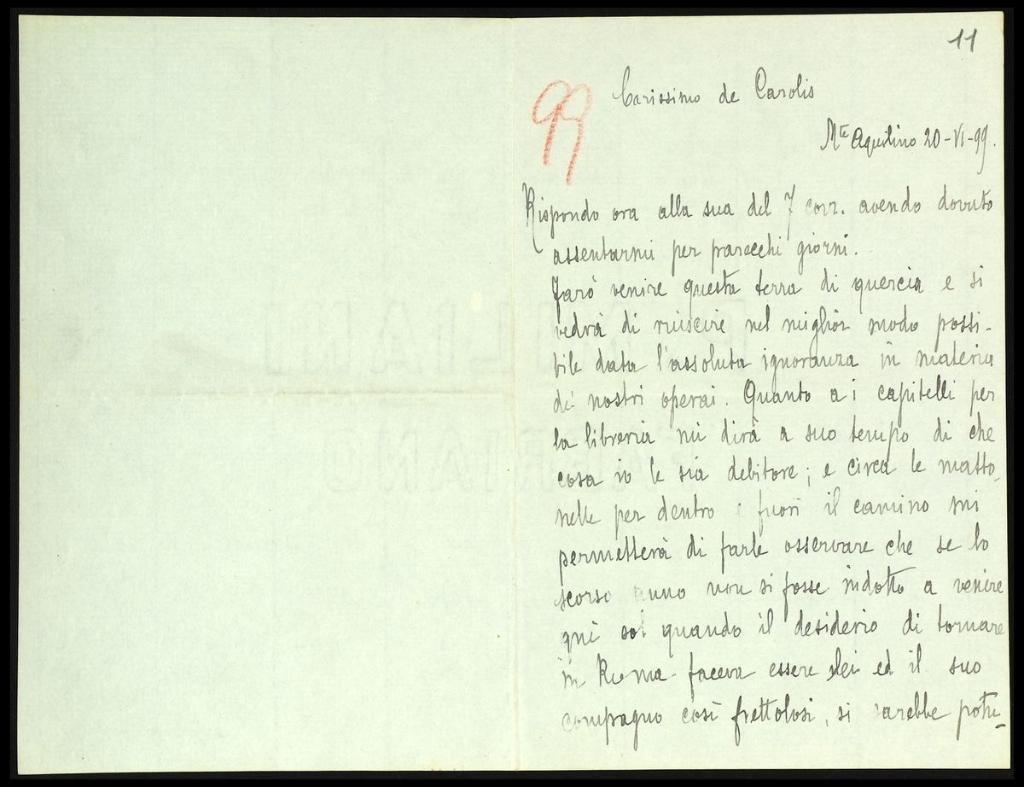 11
99
Carissimo de Carolis
Mte Aquilino 20-VI-99.
Rispondo ora alla sua del 7 corr. avendo dovuto
assentarmi per parecchi giorni.
Farò venire questa terra di quercia e si
vedrà di riuscire nel miglior modo possi-
bile data l'assoluta ignoranza in materia
dei nostri operai. Quanto a i capitelli per
la libreria mi dirà a suo tempo di che
cosa io le sia debitore; e circa le matto-
nelle per dentro e fuori il camino mi
permetterà di farle osservare che se lo
scorso anno non si fosse indotto a venire
qui sol quando il desiderio di tornare
in Roma faceva essere Lei ed il suo
compagno così frettolosi, si sarebbe potu-